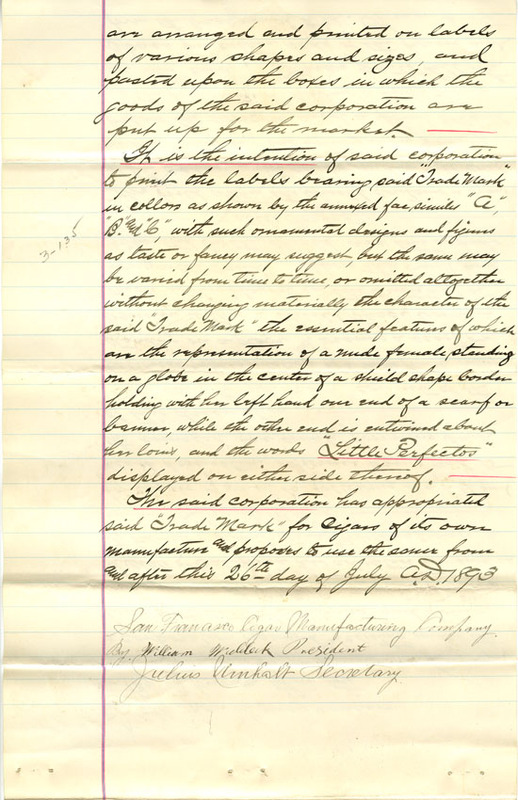 are arranged and printed on labels
of various shapes and sizes, and
pasted upon the boxes in which the
goods of the said corporation are
put up for the market.
It is the intention of said corporation
to print the labels bearing said "Trade Mark"
in collors as shown by the annexed fac, similes "A",
"B" and "C", with such ornamental designs and figures
as taste or fancy may suggest, but the same may
be varied from time to time, or omitted altogether
without changing materially the character of the
said "Trade Mark" the essential features of which
are the representation of a nude female, standing
on a globe in the center of a shield shape border
holding with her left hand one end of a scarf or
banner, while the other end is entwined about
her loins, and the words "Little Perfectos"
displayed on either side thereof.
The said corporation has appropriated
said "Trade Mark" for Cigars of its own
manufacture and proposes to use the same from
and after this 26th day of July A.D. 1893
San Francisco Cigar Manufacturing Company.
By William President
Julius Secretary
3-135